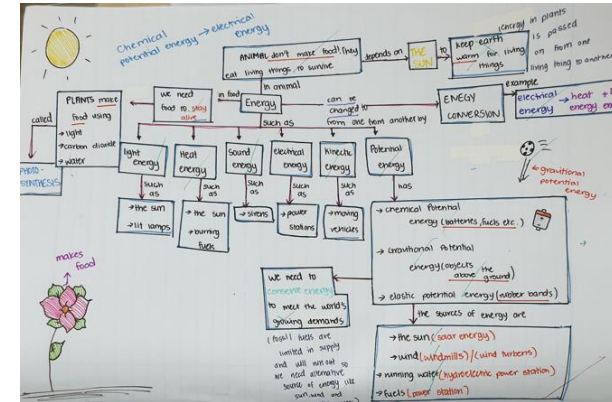 Chemical
potential energy → electrical
energy
ANIMAL don't make food! They
eat living things, to survive
depends on
THE
SUN
to
keep earth
warm for living
things
(energy in plants
is passed
on from one
living thing to another
in animal
PLANTS make
food using
→ light
→ carbon dioxide
→ water
called
PHOTO-
SYNTHESIS
we need
food to stay
alive
in food
Energy
can be
changed to
from one from another by
ENEGY
CONVERSION
example
electrical
energy
→ heat +
energy
such as
light
energy
Heat
energy
Sound
energy
electrical
energy
Kinectic
energy
Potential
energy
such
as
such
as
such
as
such
as
such
as
has
→ the sun
→ lit lamps
→ the sun
→ burning
fuels
→ sirens
→ power
stations
→ moving
vehicles
gravitional
potential
energy
→ chemical Potential
energy (batteries, fuels etc.)
→ Gravitional Potential
energy (objects the
above ground)
→ elastic potential energy (rubber bands)
makes
food
we need to
conserve energy
to meet the world's
growing demands
(fossil fuels are
limited in supply
and will run out so
we need alternative
source of energy like
sun, wind and
the sources of energy are
→ the sun (soar energy)
→ wind (windmills) / (wind turbens)
→ running water (hydroelectric power station)
→ fuels (power station)